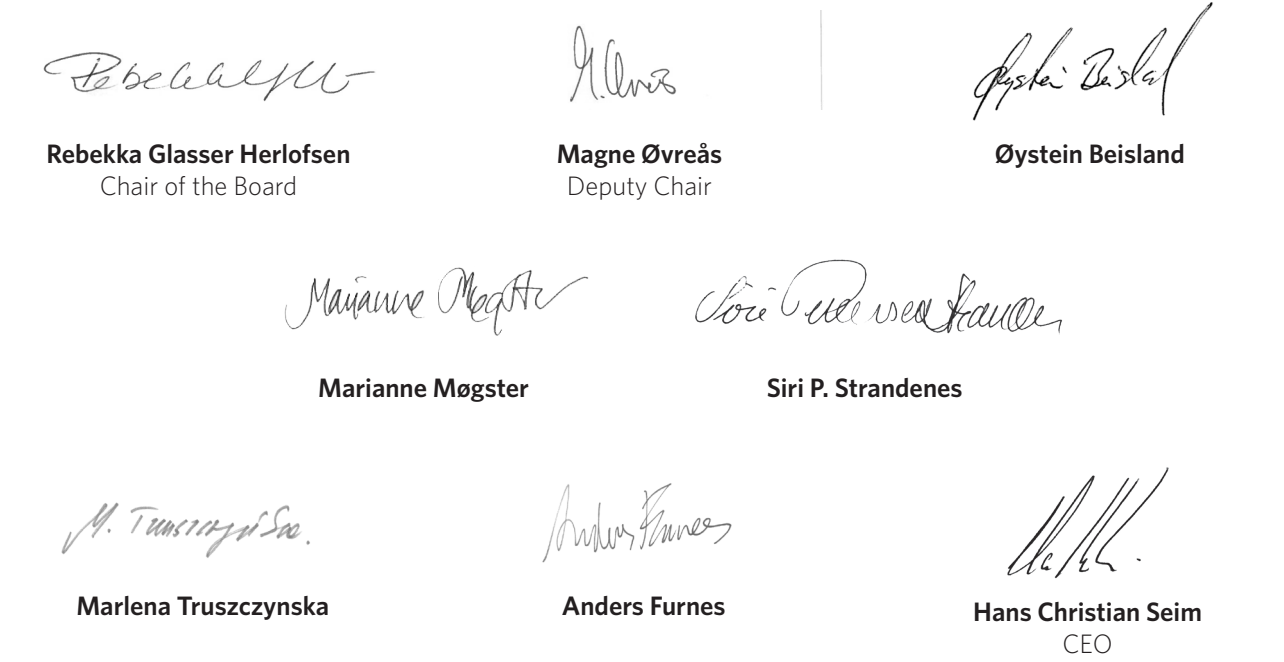 Rebekka Glasser Herlofsen
Chair of the Board
Magne Øvreås
Deputy Chair
Øystein Beisland
Marianne Møgster
Siri P. Strandenes
Marlena Truszczynska
Anders Furnes
Hans Christian Seim
CEO